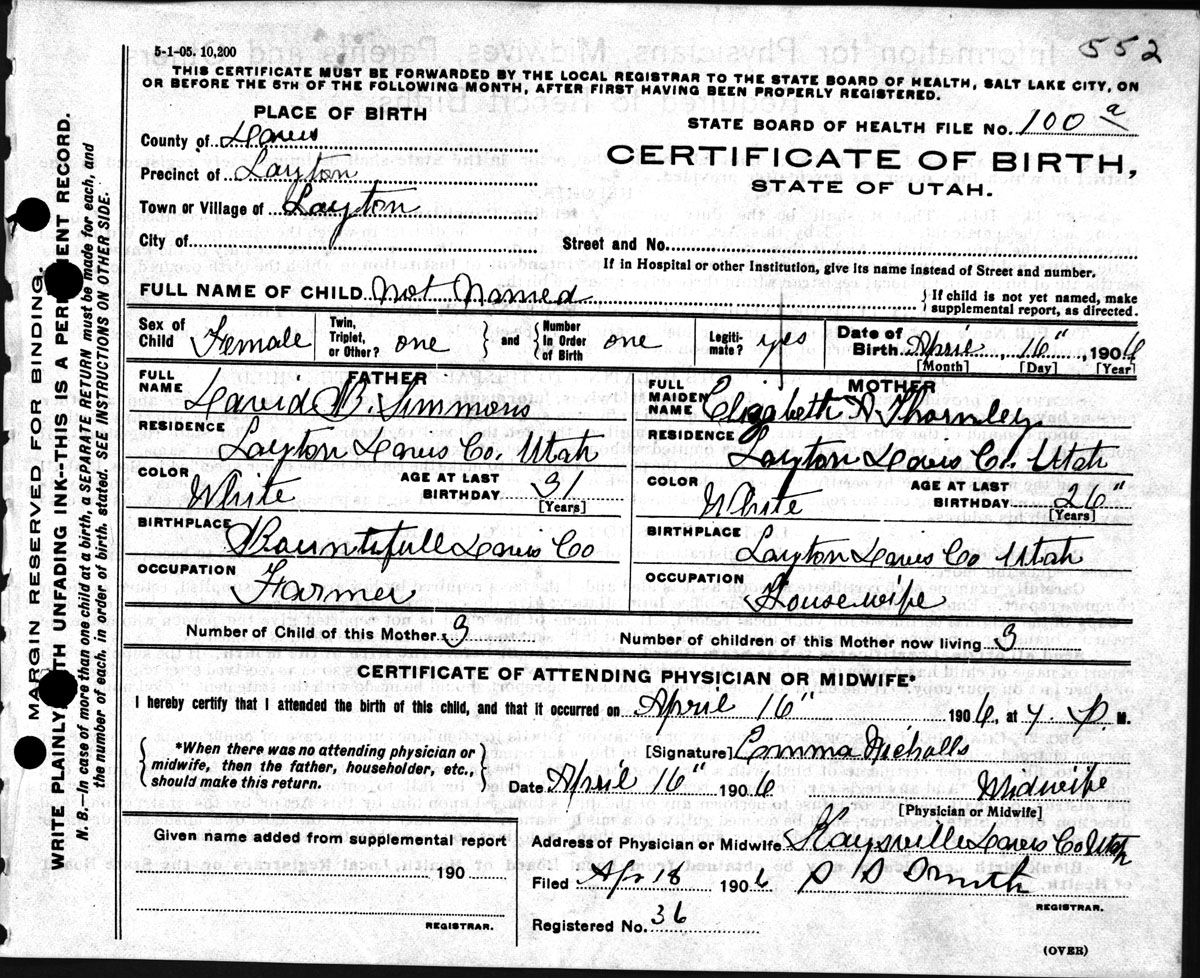 5-1-05. 10,200
552
THIS CERTIFICATE MUST BE FORWARDED BY THE LOCAL REGISTRAR TO THE STATE BOARD OF HEALTH, SALT LAKE CITY, ON
OR BEFORE THE 5TH OF THE FOLLOWING MONTH, AFTER FIRST HAVING BEEN PROPERLY REGISTERED.
PLACE OF BIRTH
STATE BOARD OF HEALTH FILE No. 100 a
County of Davis
CERTIFICATE OF BIRTH,
STATE OF UTAH.
Precinct of Layton
Town or Village of Layton
City of
Street and No.
If in Hospital or other Institution, give its name instead of Street and number.
FULL NAME OF CHILD Not Named
{ If child is not yet named, make supplemental report, as directed.
Sex of Child Female
Twin, Triplet, or Other? one } and { Number In Order of Birth one
Legiti- mate? yes
Date of Birth April 16", 1906
[Month] [Day] [Year]
FATHER
FULL NAME David B. Simmons
RESIDENCE
Layton Davis Co. Utah
COLOR White
AGE AT LAST BIRTHDAY 31
[Years]
BIRTHPLACE Bountifull Davis Co
OCCUPATION
Farmer
MOTHER
FULL MAIDEN NAME Elizabeth A Thornley
RESIDENCE
Layton Davis Co. Utah
COLOR White
AGE AT LAST BIRTHDAY 26"
[Years]
BIRTHPLACE
Layton Davis Co Utah
OCCUPATION
Housewife
Number of Child of this Mother 3
Number of children of this Mother now living 3
CERTIFICATE OF ATTENDING PHYSICIAN OR MIDWIFE*
I hereby certify that I attended the birth of this child, and that it occurred on April 16" 1906, at P. M.
{ *When there was no attending physician or midwife, then the father, householder, etc., should make this return. }
[Signature] Emma Nicholls
Date April 16" 1906
Midwife
[Physician or Midwife]
Given name added from supplemental report
190
REGISTRAR.
Address of Physician or Midwife Kaysville Davis Co Utah
Filed Apr 18 1906
Smith
REGISTRAR.
Registered No. 36
(OVER)
MARGIN RESERVED FOR BINDING.
WRITE PLAINLY WITH UNFADING INK--THIS IS A PERMANENT RECORD.
N. B.—In case of more than one child at a birth, a SEPARATE RETURN must be made for each, and
the number of each, in order of birth, stated. SEE INSTRUCTIONS ON OTHER SIDE.